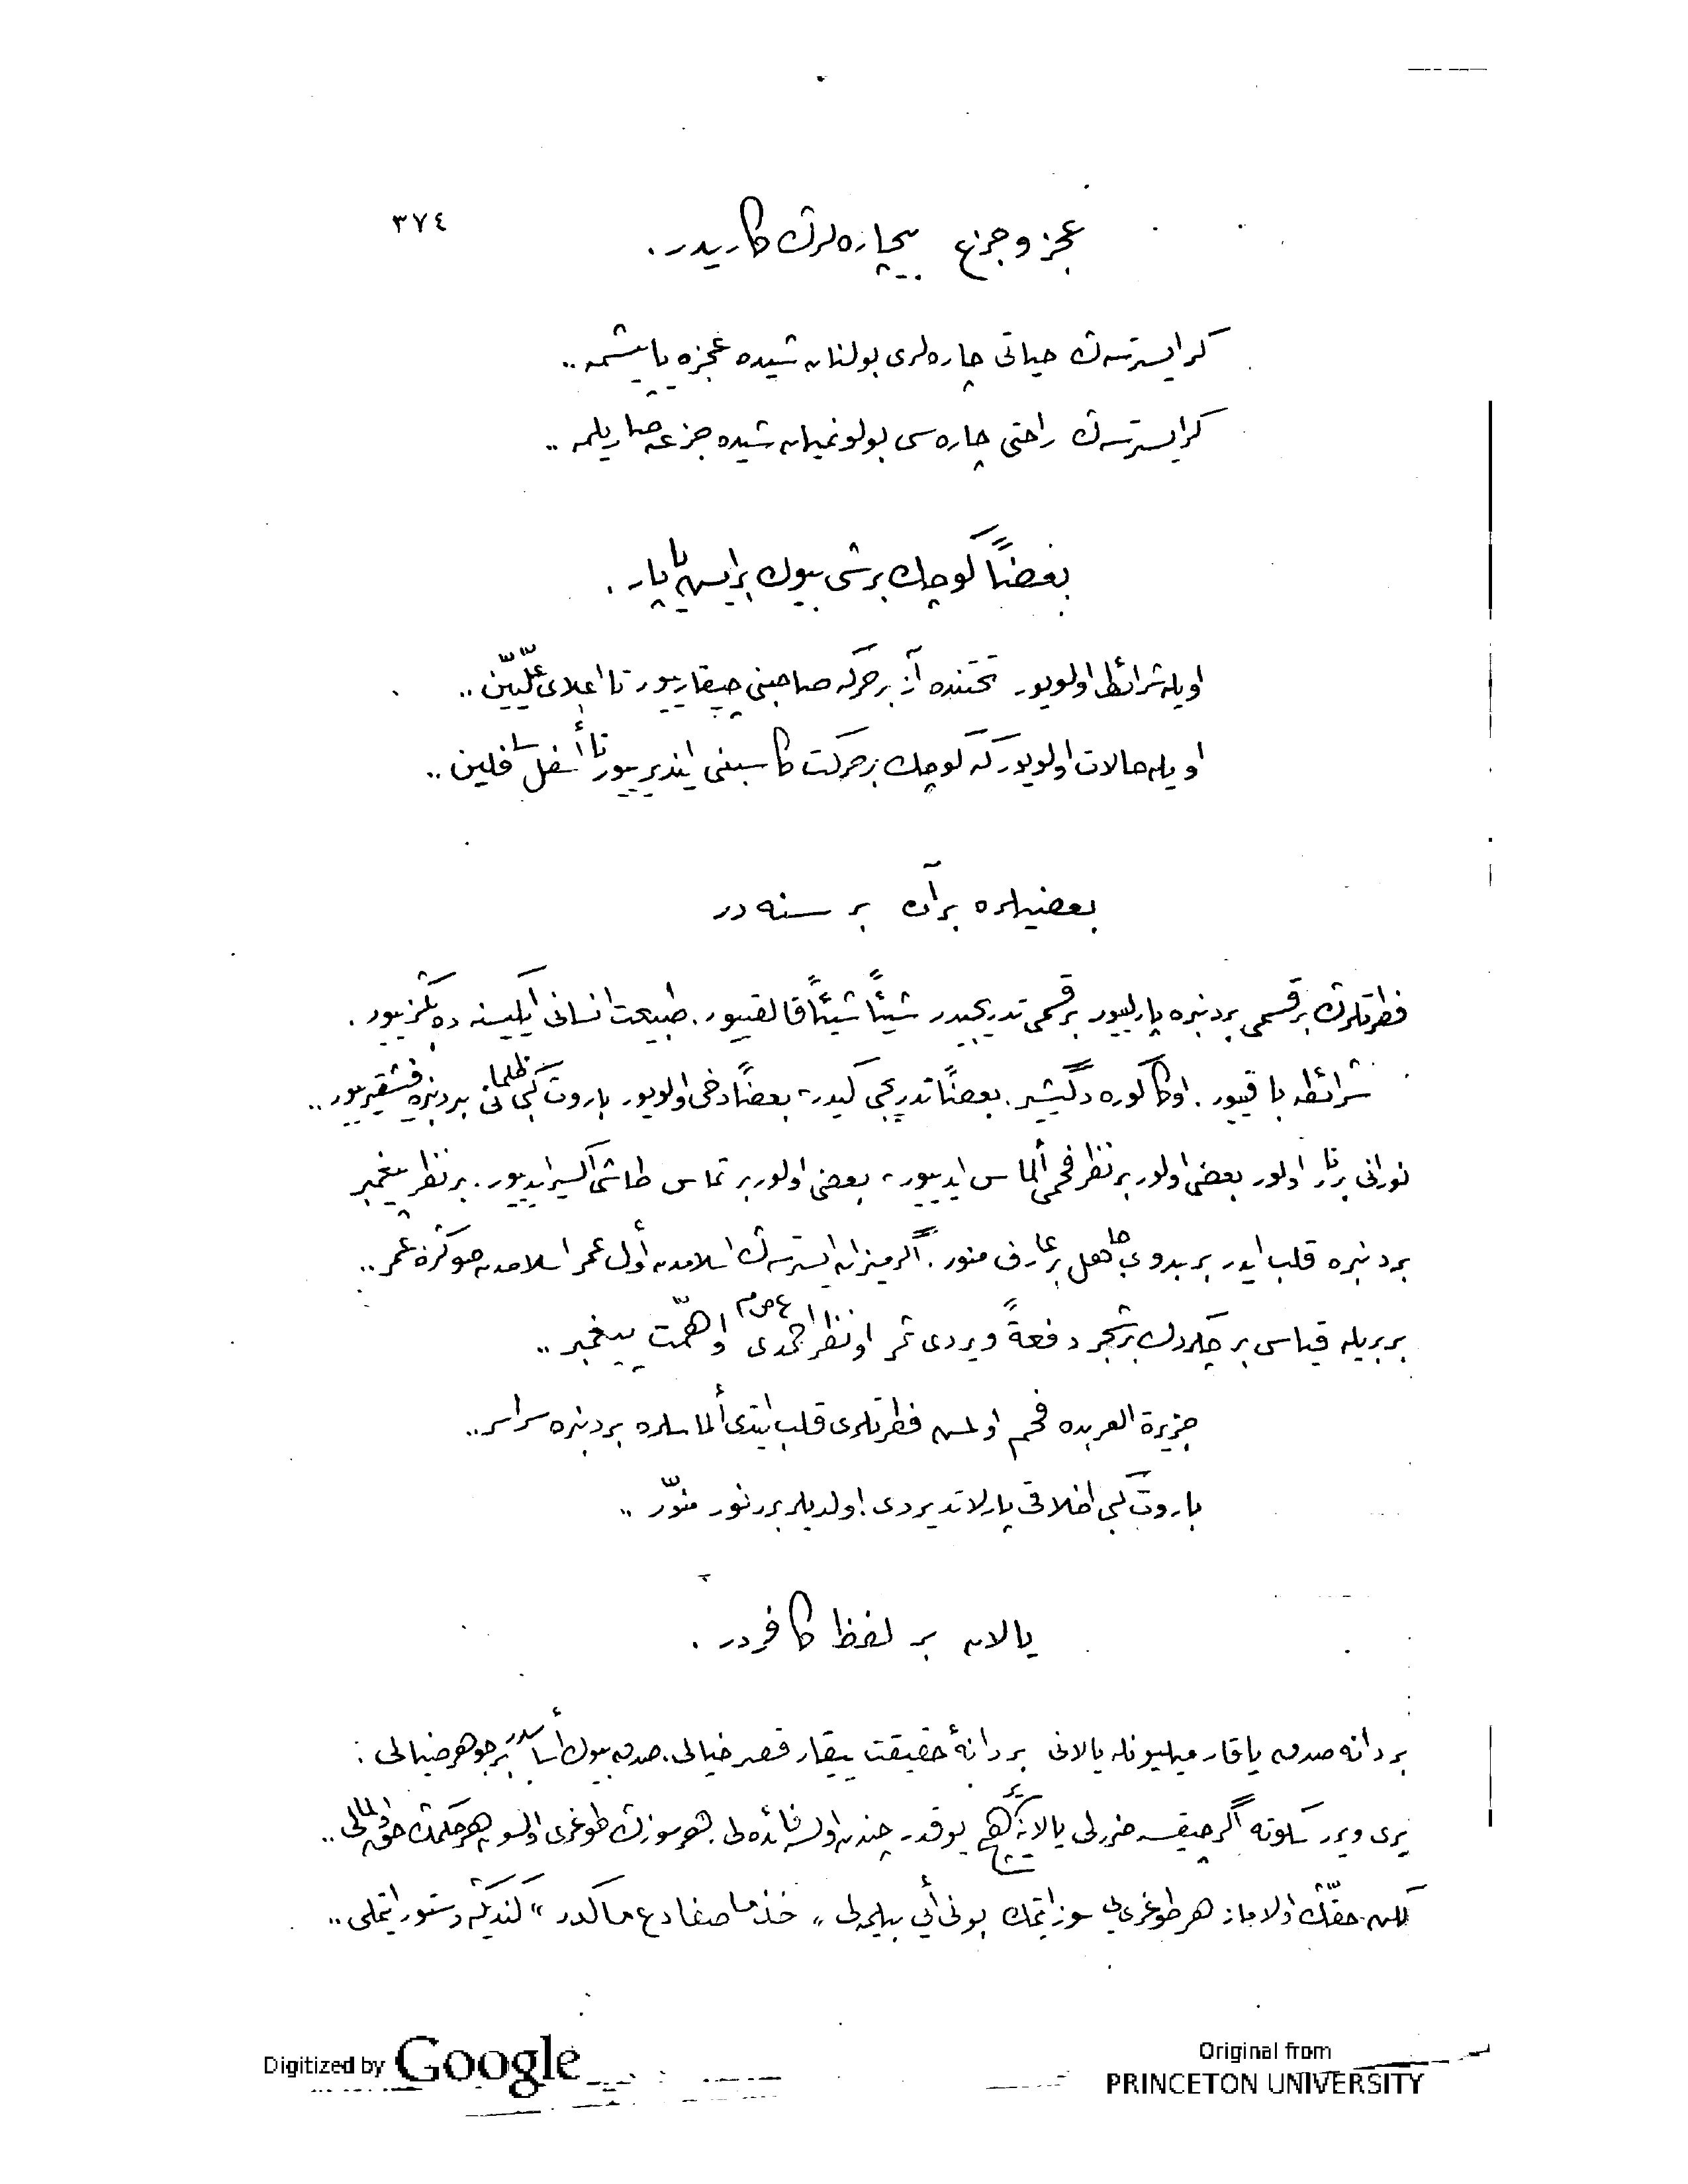 ٣٧٤
عجز و جزع بیچاره‌لرڭ كاریدر .
گر ایسترسه‌ڭ حیاتی چاره‌لری بولنان شیده عجزه یاپیشمه ..
گر ایسترسه‌ڭ راحتی چاره‌سی بولونمیان شیده جزعه صاریلمه ..
بعضًا كوچك بر شی بیوك بر ایش یاپار .
اویله شرائط اولویور تحتنده آز بر حركه صاحبنی چیقاریور تا اعلای علّیّین ..
اویله حالات اولویور كه كوچك بر حركت كاسبنی ایندیریور تا أسفل سافلین ..
بعضیلره بر آن بر سنه در
فطرتلرڭ بر قسمی بردنبره پارلیور بر قسمی تدریجیدر شیئًا شیئًا قالقییور . طبیعت انسانی ایكیسنه ده بڭزییور .
شرائطه باقییور . اوڭا كوره دگیشیر . بعضًا تدریجی كیدر ، بعضًا دخی اولویور باروت كبی ظلمانی بردنبره فیشقیرییور ..
نورانی بر نار اولور بعضی اولور بر نظر فحمی ألماس ایدییور ، بعضی اولور بر تماس طاشی اكسیر ایدییور . بر نظر پیغمبر
بردنبره قلب ایدر بر بدویٔ جاهل بر عارف منور . اگر میزان ایسترسه‌ڭ اسلامدن أول عمر اسلامدن صوڭره عمر ..
بربریله قیاسی بر چكردك بر شجر دفعةً ویردی ثمر او نظر احمدی ع ص م او همّت پیغمبر ..
جزیرة العربده فحم اولمش فطرتلری قلب ایتدی ألماسلره بردنبره سراسر ..
باروت كبی اخلاقی پارلاتدیردی ! اولدیلر برر نور منوّر ..
یالان بر لفظ كافردر .
بر دانه صدق یاقار میلیونله یالانی بر دانهٔ حقیقت ییقار قصر خیالی . صدق بیوك أساسدر بر جوهر ضیالی :
یری ویرر سكوته اگر چیقسه ضررلی یالانه یر هیچ یوقدر چندان اولسه فائده‌لی . هر سوزڭ طوغری اولسون هر حكمڭ حق اولمالی ..
لكن حقّڭ اولاماز هر طوغری‌یی سوز ایتمك بونی أیی بیلیملی ، خذ ما صفا دع ما كدر ، كندیڭه دستور ایتملی ..
Digitized by Google
Original from
PRINCETON UNIVERSITY